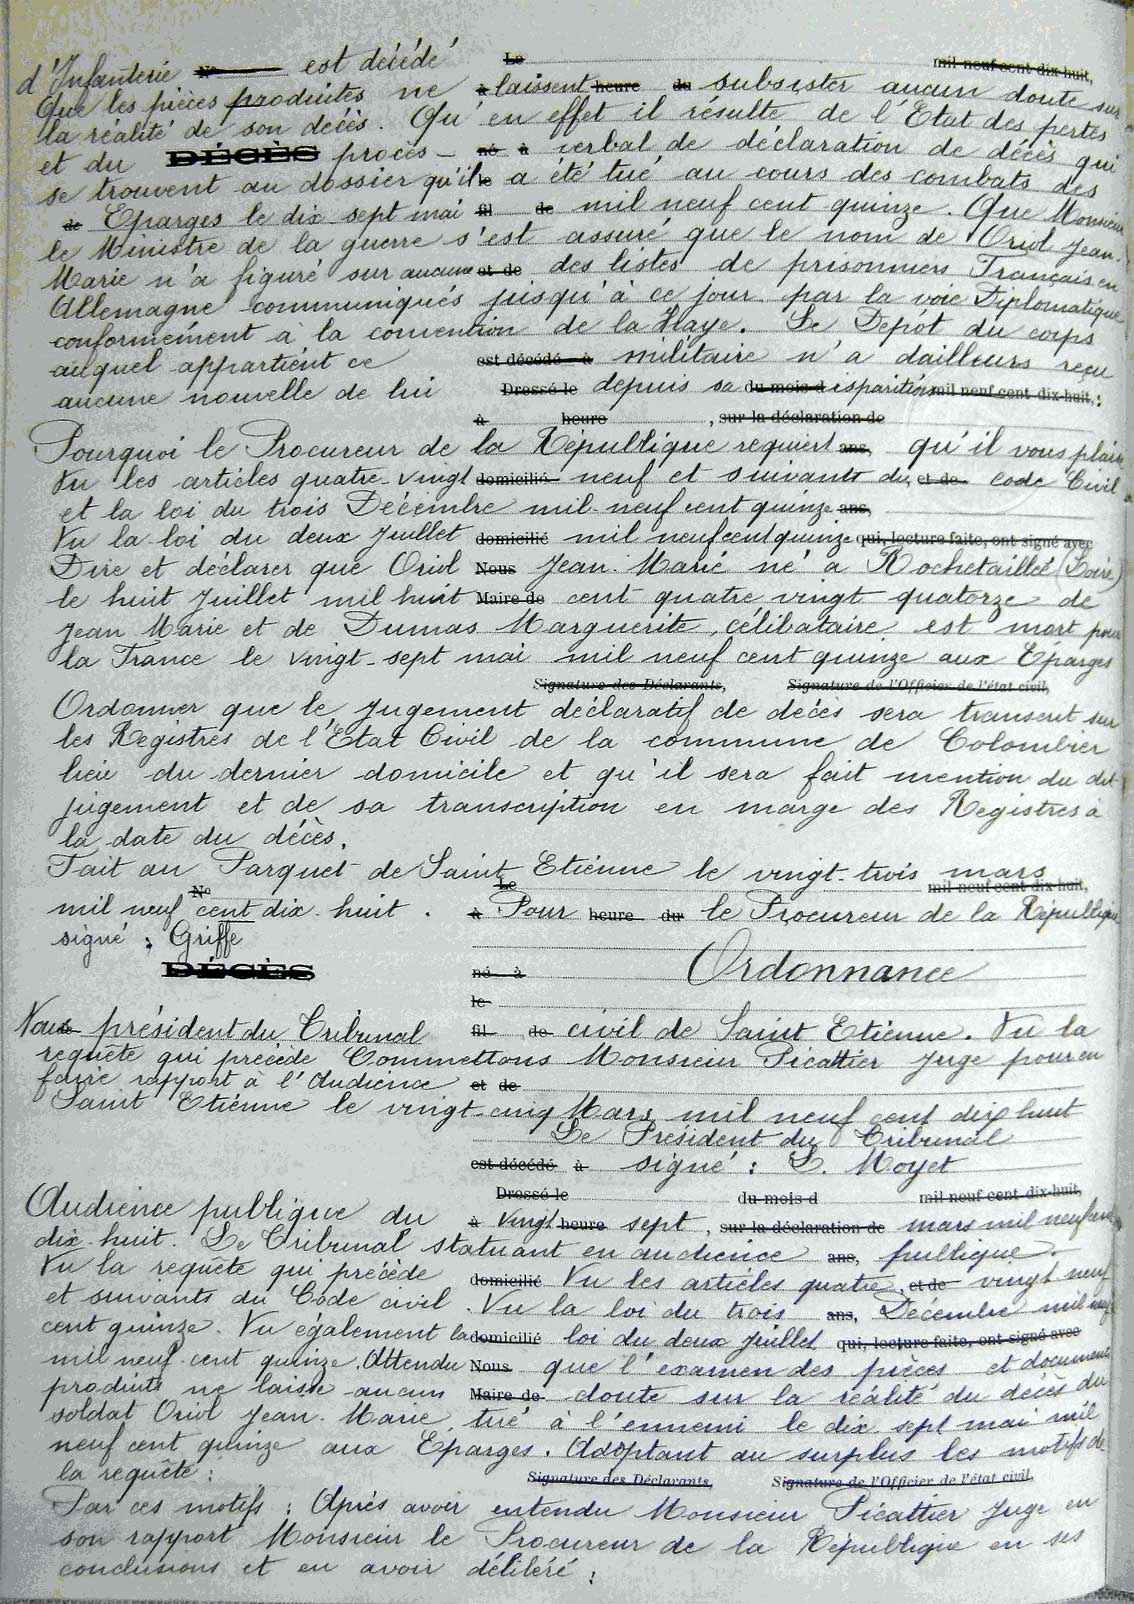 d'Infanterie No est décédé Le mil neuf cent dix-huit,
Que les pièces produites ne à laissent heure du subsister aucun doute sur
la réalité de son décès. Qu'en effet il résulte de l'Etat des pertes
et du DÉCÈS procès- né à verbal de déclaration de décès qui
se trouvent au dossier qu'il le a été tué au cours des combats des
de Eparges le dix sept mai fil de mil neuf cent quinze. Que Monsieur
le Ministre de la guerre s'est assuré que le nom de Oriol Jean-
Marie n'a figuré sur aucune et de des listes de prisonniers Français en
Allemagne communiqués jusqu'à ce jour par la voie Diplomatique
conformément à la convention de la Haye. Le Dépôt du corps
auquel appartient ce est décédé à militaire n'a dailleurs reçu
aucune nouvelle de lui Dressé le depuis sa du mois d isparition mil neuf cent dix-huit, :
à heure , sur la déclaration de
Pourquoi le Procureur de la République requiert ans, qu'il vous plaise
Vu les articles quatre-vingt domicilié neuf et suivants du, et de code Civil
et la loi du trois Décembre mil-neuf cent quinze ans,
Vu la loi du deux Juillet domicilié mil neuf cent quinze qui, lecture faite, ont signé avec
Dire et déclarer que Oriol Nous Jean-Marie né à Rochetaillée (Loire)
le huit Juillet mil huit Maire de cent quatre vingt quatorze de
Jean Marie et de Dumas Marguerite, célibataire est mort pour
la France le vingt-sept mai mil neuf cent quinze aux Eparges
Signature des Déclarants, Signature de l'Officier de l'état civil,
Ordonner que le Jugement déclaratif de décès sera transcrit sur
les Registres de l'Etat Civil de la commune de Colombier
lieu du dernier domicile et qu'il sera fait mention du dit
jugement et de sa transcription en marge des Registres à
la date du décès.
Fait au Parquet de Saint Etienne le vingt-trois mars
No Le mil neuf cent dix-huit,
mil neuf cent dix-huit. à Pour heure du le Procureur de la République
signé : Griffe
DÉCÈS né à Ordonnance
le
Nous de président du Tribunal fil de civil de Saint Etienne. Vu la
requête qui précède Commettons Monsieur Picattier Juge pour en
faire rapport à l'Audience et de
Saint Etienne le vingt-cinq Mars mil neuf cent dix huit
Le Président du Tribunal
est décédé à signé : L. Moyet
Dressé le du mois d mil neuf cent dix-huit,
Audience publique du à vingt heure sept, sur la déclaration de mars mil neuf cent
dix huit. Le Tribunal statuant en audience ans, publique.
Vu la requête qui précède domicilié Vu les articles quatre, et de vingt neuf
et suivants du Code civil. Vu la loi du trois ans, Décembre mil neuf
cent quinze. Vu également la domicilié loi du deux Juillet qui, lecture faite, ont signé avec
mil neuf cent quinze. Attendu Nous que l'examen des pièces et documents
produits ne laisse aucun Maire de doute sur la réalité du décès du
soldat Oriol Jean-Marie tué à l'ennemi le dix sept mai mil
neuf cent quinze aux Eparges. Adoptant au surplus les motifs de
la requête :
Signature des Déclarants, Signature de l'Officier de l'état civil,
Par ces motifs : Après avoir entendu Monsieur Picattier Juge en
son rapport Monsieur le Procureur de la République en ses
conclusions et en avoir délibéré :